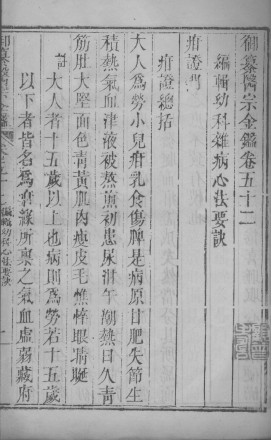 御纂醫宗金鑑卷五十二
編輯幼科雜病心法要訣
疳證門
疳證總括
大人爲勞小兒疳乳食傷脾是病原甘肥失節生
積熱氣血津液被熬煎初患尿泔午潮熱日久青
筋肚大堅面色青黃肌肉瘦皮毛憔悴眼睛𥆧
註大人者十五歲以上也病則爲勞若十五歲
以下者皆名爲疳緣所稟之氣血虛弱藏府